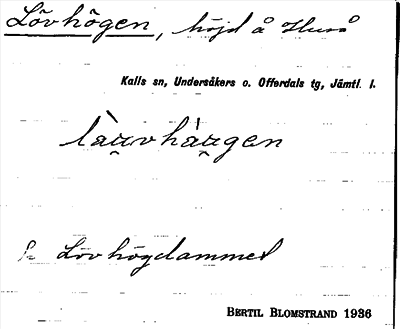 Lövhögen, höjd å Huså
Kalls sn, Undersåkers o. Offerdals tg, Jämtl. l.
làu̯vhàu̯gen
Se Lövhögdammet
BERTIL BLOMSTRAND 1936